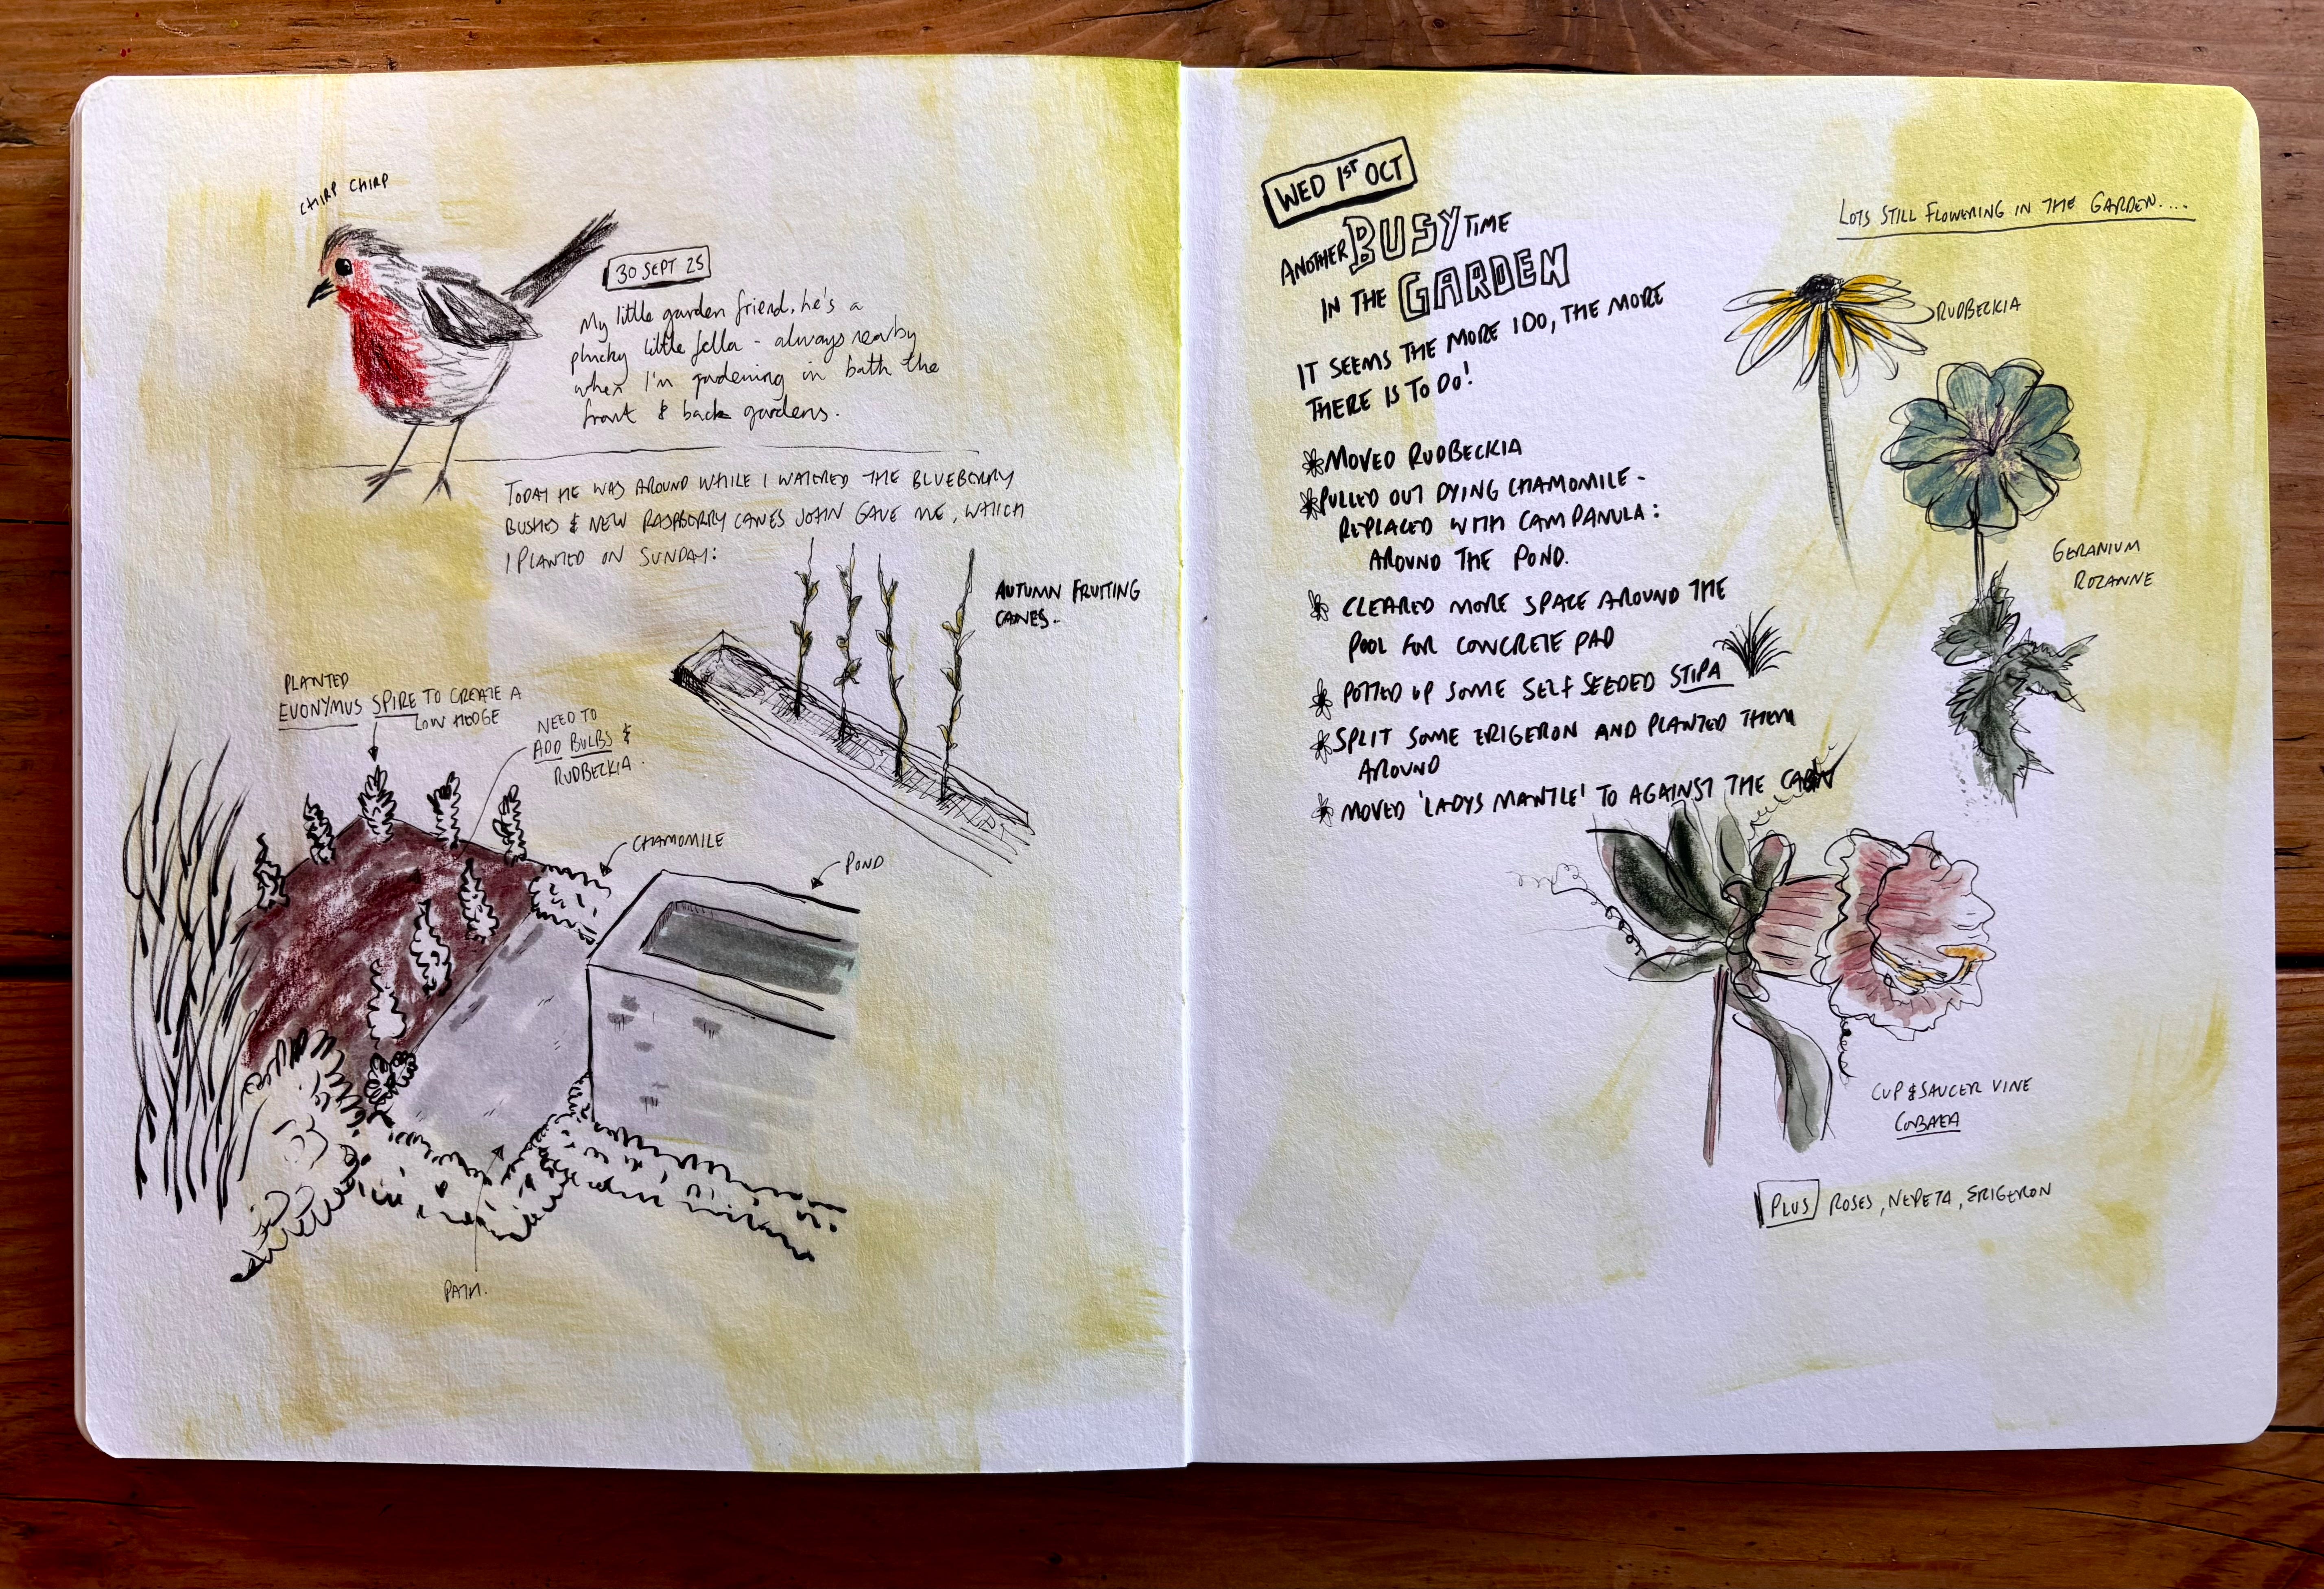 CHIRP CHIRP
30 SEPT 25
My little garden friend. he's a
plucky little fella - always nearby
when I'm gardening in both the
front & back gardens.
TODAY HE WAS AROUND WHILE I WATERED THE BLUEBERRY
BUSHES & NEW RASPBERRY CANES JOHN GAVE ME, WHICH
I PLANTED ON SUNDAY:
AUTUMN FRUITING
CANES.
PLANTED
EUONYMUS SPIRE TO CREATE A
LOW HEDGE
NEED TO
ADD BULBS &
RUDBECKIA.
CHAMOMILE
POND
PATH.
WED 1ST OCT
ANOTHER BUSY TIME
IN THE GARDEN
IT SEEMS THE MORE I DO, THE MORE
THERE IS TO DO!
MOVED RUDBECKIA
PULLED OUT DYING CHAMOMILE -
REPLACED WITH CAMPANULA:
AROUND THE POND.
CLEARED MORE SPACE AROUND THE
POOL FOR CONCRETE PAD
POTTED UP SOME SELF SEEDED STIPA
SPLIT SOME ERIGERON AND PLANTED THEM
AROUND
MOVED 'LADYS MANTLE' TO AGAINST THE CABIN
LOTS STILL FLOWERING IN THE GARDEN....
RUDBECKIA
GERANIUM
ROZANNE
CUP & SAUCER VINE
COBAEA
PLUS ROSES, NEPETA, ERIGERON